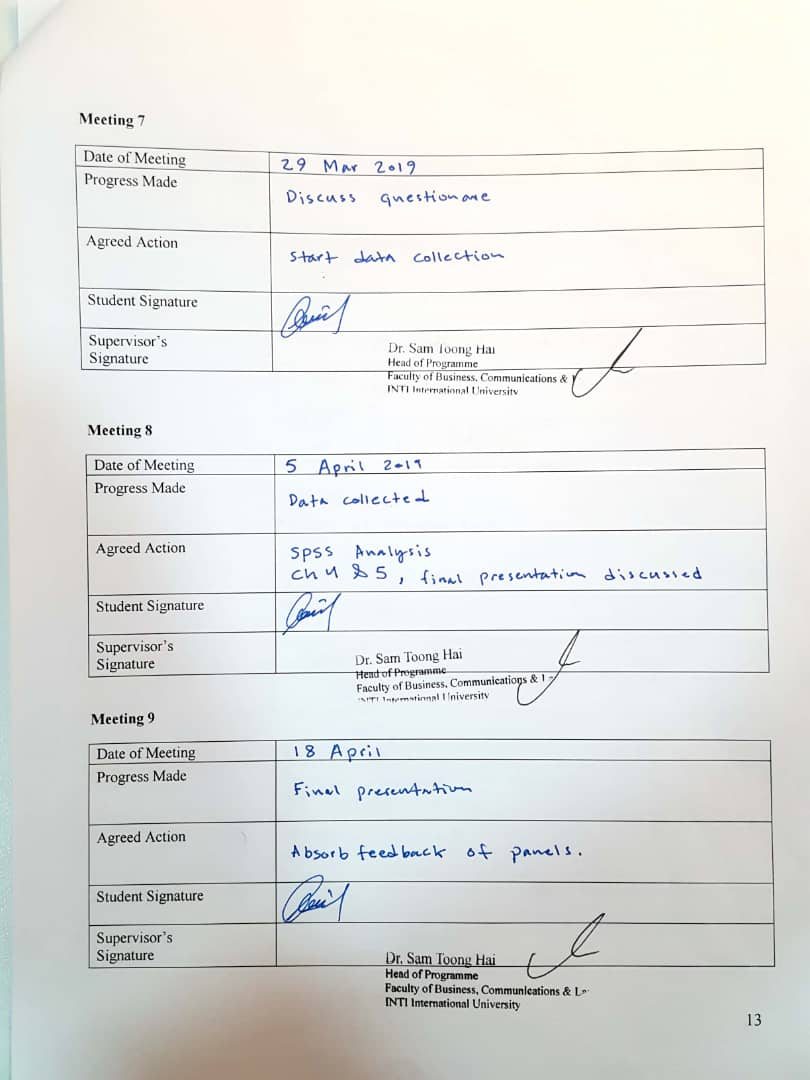 Meeting 7
Date of Meeting 29 Mar 2019
Progress Made
Discuss questionare
Agreed Action
Start data collection
Student Signature
Supervisor's
Signature
Dr. Sam Toong Hai
Head of Programme
Faculty of Business, Communications &
INTI International University
Meeting 8
Date of Meeting 5 April 2019
Progress Made
Data collected
Agreed Action
SPSS Analysis
Ch 4 & 5, final presentation discussed
Student Signature
Supervisor's
Signature
Dr. Sam Toong Hai
Head of Programme
Faculty of Business, Communications &
INTI International University
Meeting 9
Date of Meeting 18 April
Progress Made
Final presentation
Agreed Action
Absorb feedback of panels.
Student Signature
Supervisor's
Signature
Dr. Sam Toong Hai
Head of Programme
Faculty of Business, Communications &
INTI International University
13